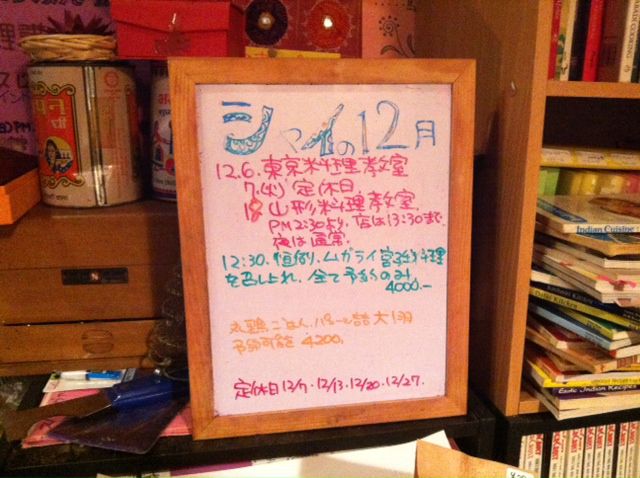 シャイの12月
12.6. 東京料理教室
7.(火) 定休日
18 山形料理教室
PM2:30より. 店は13:30まで.
夜は通常.
12.30. 恒例. ムガライ宮廷料理
を召し上れ. 全て予約のみ
4000.-
丸鶏ごはん. パニール詰 大1羽
予約可能 4,200.
定休日 12/7. 12/13. 12/20. 12/27.
Indian Cuisine
Delhi Kitchen
Exotic Indian Recipes